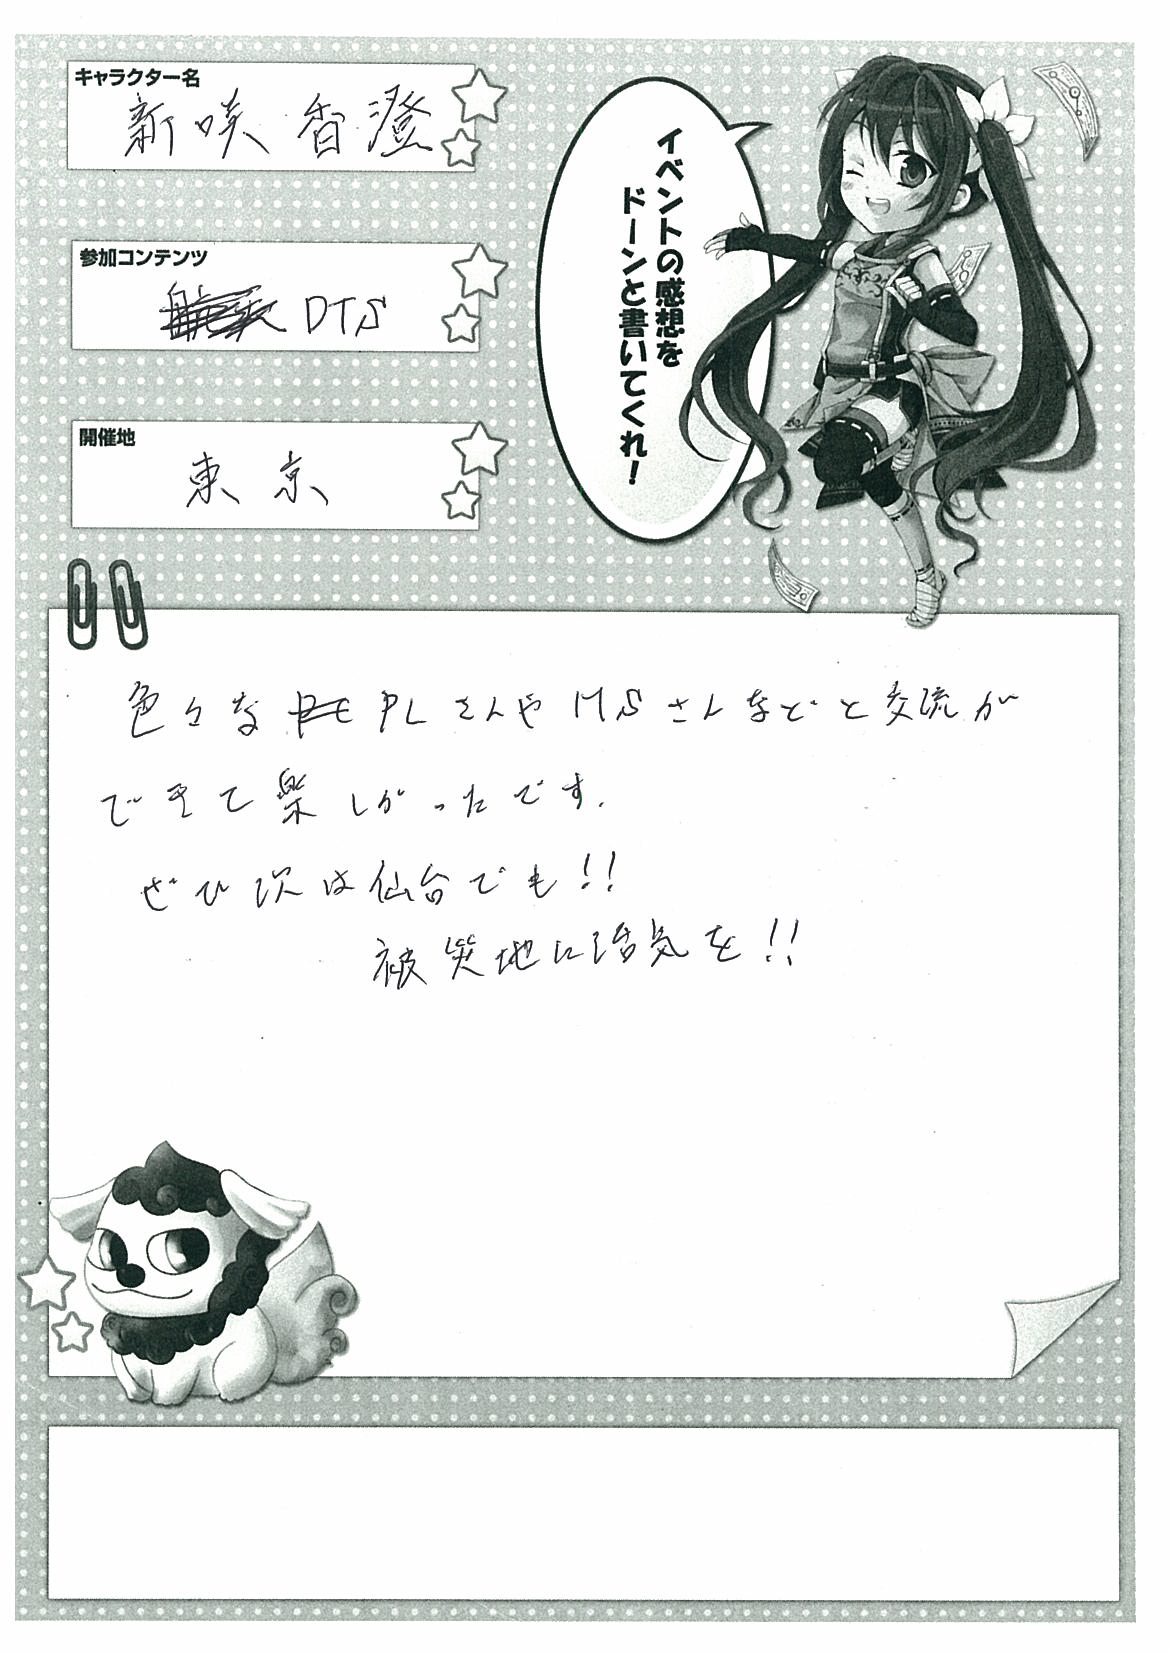 キャラクター名
新咲 香澄
参加コンテンツ
DTS
開催地
東京
イベントの感想を
ドーンと書いてくれ!
色々な PLさんやMSさんなどと交流が
できて楽しかったです.
ぜひ次は仙台でも!!
被災地に活気を!!